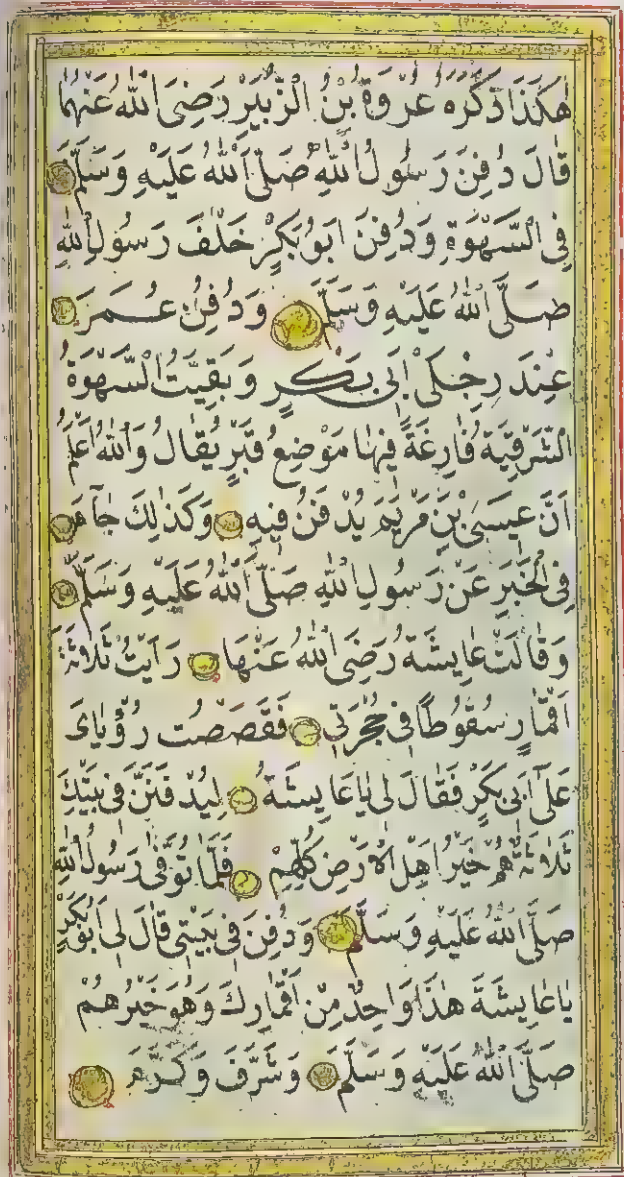 هٰكَذَا ذَكَرَهُ عُرْوَةُ بْنُ الزُّبَيْرِ رَضِيَ اللّٰهُ عَنْهُمَا
قَالَ دُفِنَ رَسُولُ اللّٰهِ صَلَّى اللّٰهُ عَلَيْهِ وَسَلَّمَ
فِي السَّهْوَةِ وَدُفِنَ اَبُو بَكْرٍ خَلْفَ رَسُولِ اللّٰهِ
صَلَّى اللّٰهُ عَلَيْهِ وَسَلَّمَ وَدُفِنَ عُمَرَ
عِنْدَ رِجْلَىْ اَبِى بَكْرٍ وَبَقِيَتْ السَّهْوَةُ
الشَّرْقِيَّةُ فَارِغَةً فِيهَا مَوْضِعُ قَبْرٍ يُقَالُ وَاللّٰهُ اَعْلَمُ
اَنَّ عِيسَى بْنَ مَرْيَمَ يُدْفَنُ فِيهِ وَكَذٰلِكَ جَآءَ
فِى الْخَبَرِ عَنْ رَسُولِ اللّٰهِ صَلَّى اللّٰهُ عَلَيْهِ وَسَلَّمَ
وَقَالَتْ عَايِشَةُ رَضِىَ اللّٰهُ عَنْهَا رَاَيْتُ ثَلَاثَةَ
اَقْمَارٍ سُقُوطًا فِى حُجْرَتِى فَقَصَصْت رُؤْيَاىَ
عَلَى اَبِى بَكْرٍ فَقَالَ لِى يَا عَايِشَةُ لَيُدْفَنَنَّ فِى بَيْتِكِ
ثَلَاثَةٌ هُمْ خَيْرُ اَهْلِ الْاَرْضِ كُلِّهِمْ فَلَمَّا تُوُفِّىَ رَسُولُ اللّٰهِ
صَلَّى اللّٰهُ عَلَيْهِ وَسَلَّمَ وَدُفِنَ فِى بَيْتِى قَالَ لِى اَبُو بَكْرٍ
يَا عَايِشَةَ هٰذَا وَاحِدٌ مِنْ اَقْمَارِكَ وَهُوَ خَيْرُهُمْ
صَلَّى اللّٰهُ عَلَيْهِ وَسَلَّمَ وَشَرَّفَ وَكَرَّمَ